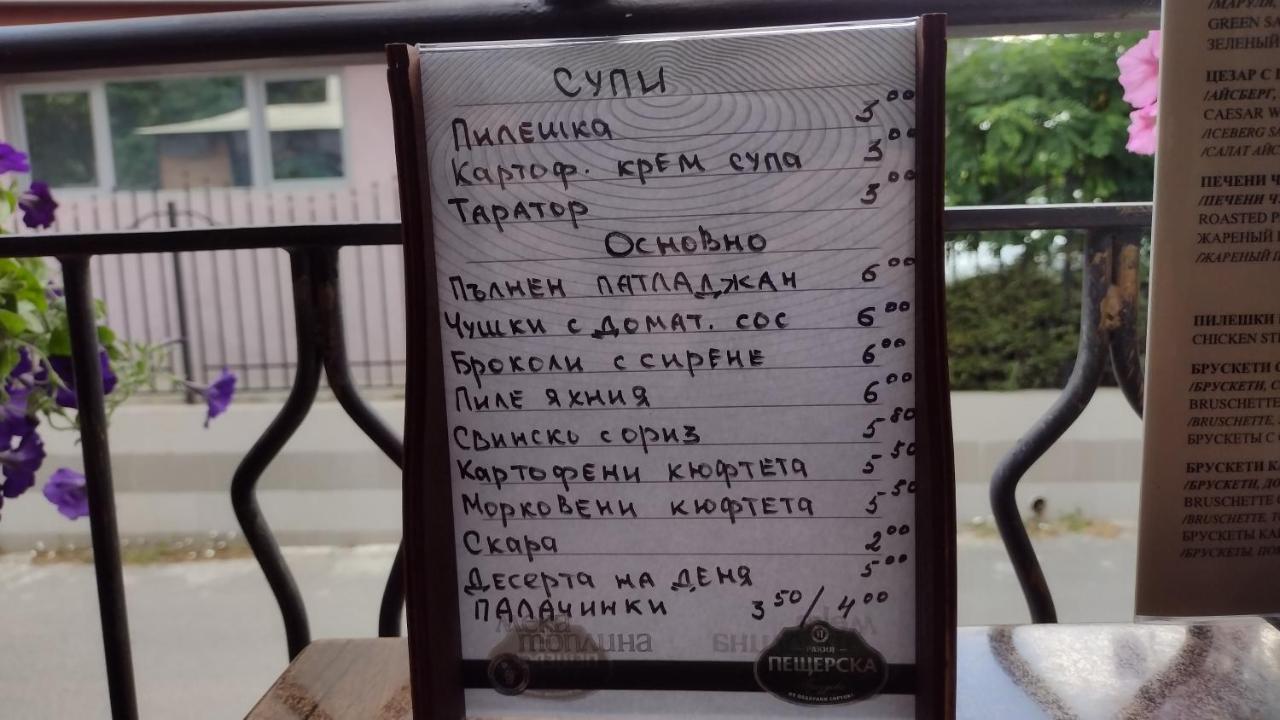 СУПИ
Пилешка 3⁰⁰
Картоф. крем супа 3⁰⁰
Таратор 3⁰⁰
Основно
Пълнен патладжан 6⁰⁰
Чушки с домат. сос 6⁰⁰
Броколи с сирене 6⁰⁰
Пиле яхния 6⁰⁰
Свинско с ориз 5⁸⁰
Картофени кюфтета 5⁵⁰
Морковени кюфтета 5⁵⁰
Скара 2⁰⁰
Десерта на деня 5⁰⁰
Палачинки 3⁵⁰/4⁰⁰
мека
топлина
РАКИЯ
ПЕЩЕРСКА
/МАРУЛЯ,
GREEN
ЗЕЛЕНЫЙ
ЦЕЗАР С
/АЙСБЕРГ,
CAESAR
/ICEBERG
/САЛАТ
ПЕЧЕНИ
/ПЕЧЕНИ
ROASTED
ЖАРЕНЫЙ
/ЖАРЕНЫЙ
ПИЛЕШКИ
CHICKEN
БРУСКЕТИ
/БРУСКЕТИ,
BRUSCHETTE
/BRUSCHETTE,
БРУСКЕТЫ С
БРУСКЕТИ
/БРУСКЕТИ,
BRUSCHETTE
/BRUSCHETTE,
БРУСКЕТЫ
/БРУСКЕТЫ,